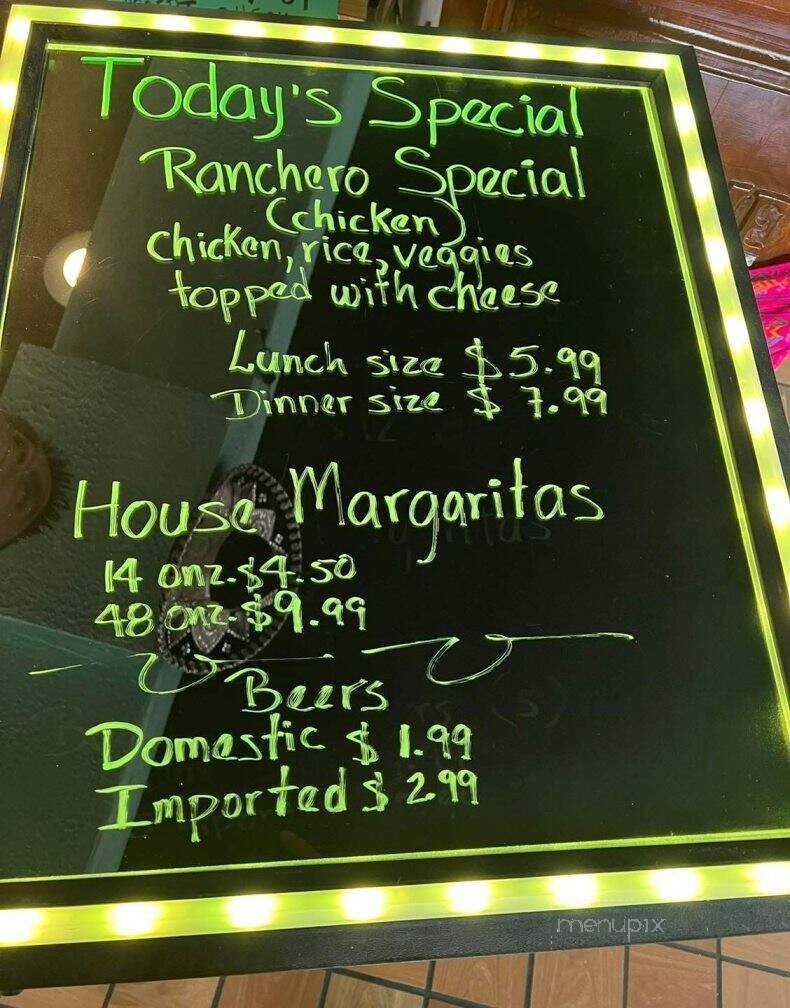 Today's Special
Ranchero Special
(chicken)
chicken, rice, veggies
topped with cheese
Lunch size $5.99
Dinner size $7.99
House Margaritas
14 onz. $4.50
48 onz. $9.99
Beers
Domestic $1.99
Imported $2.99
menupix